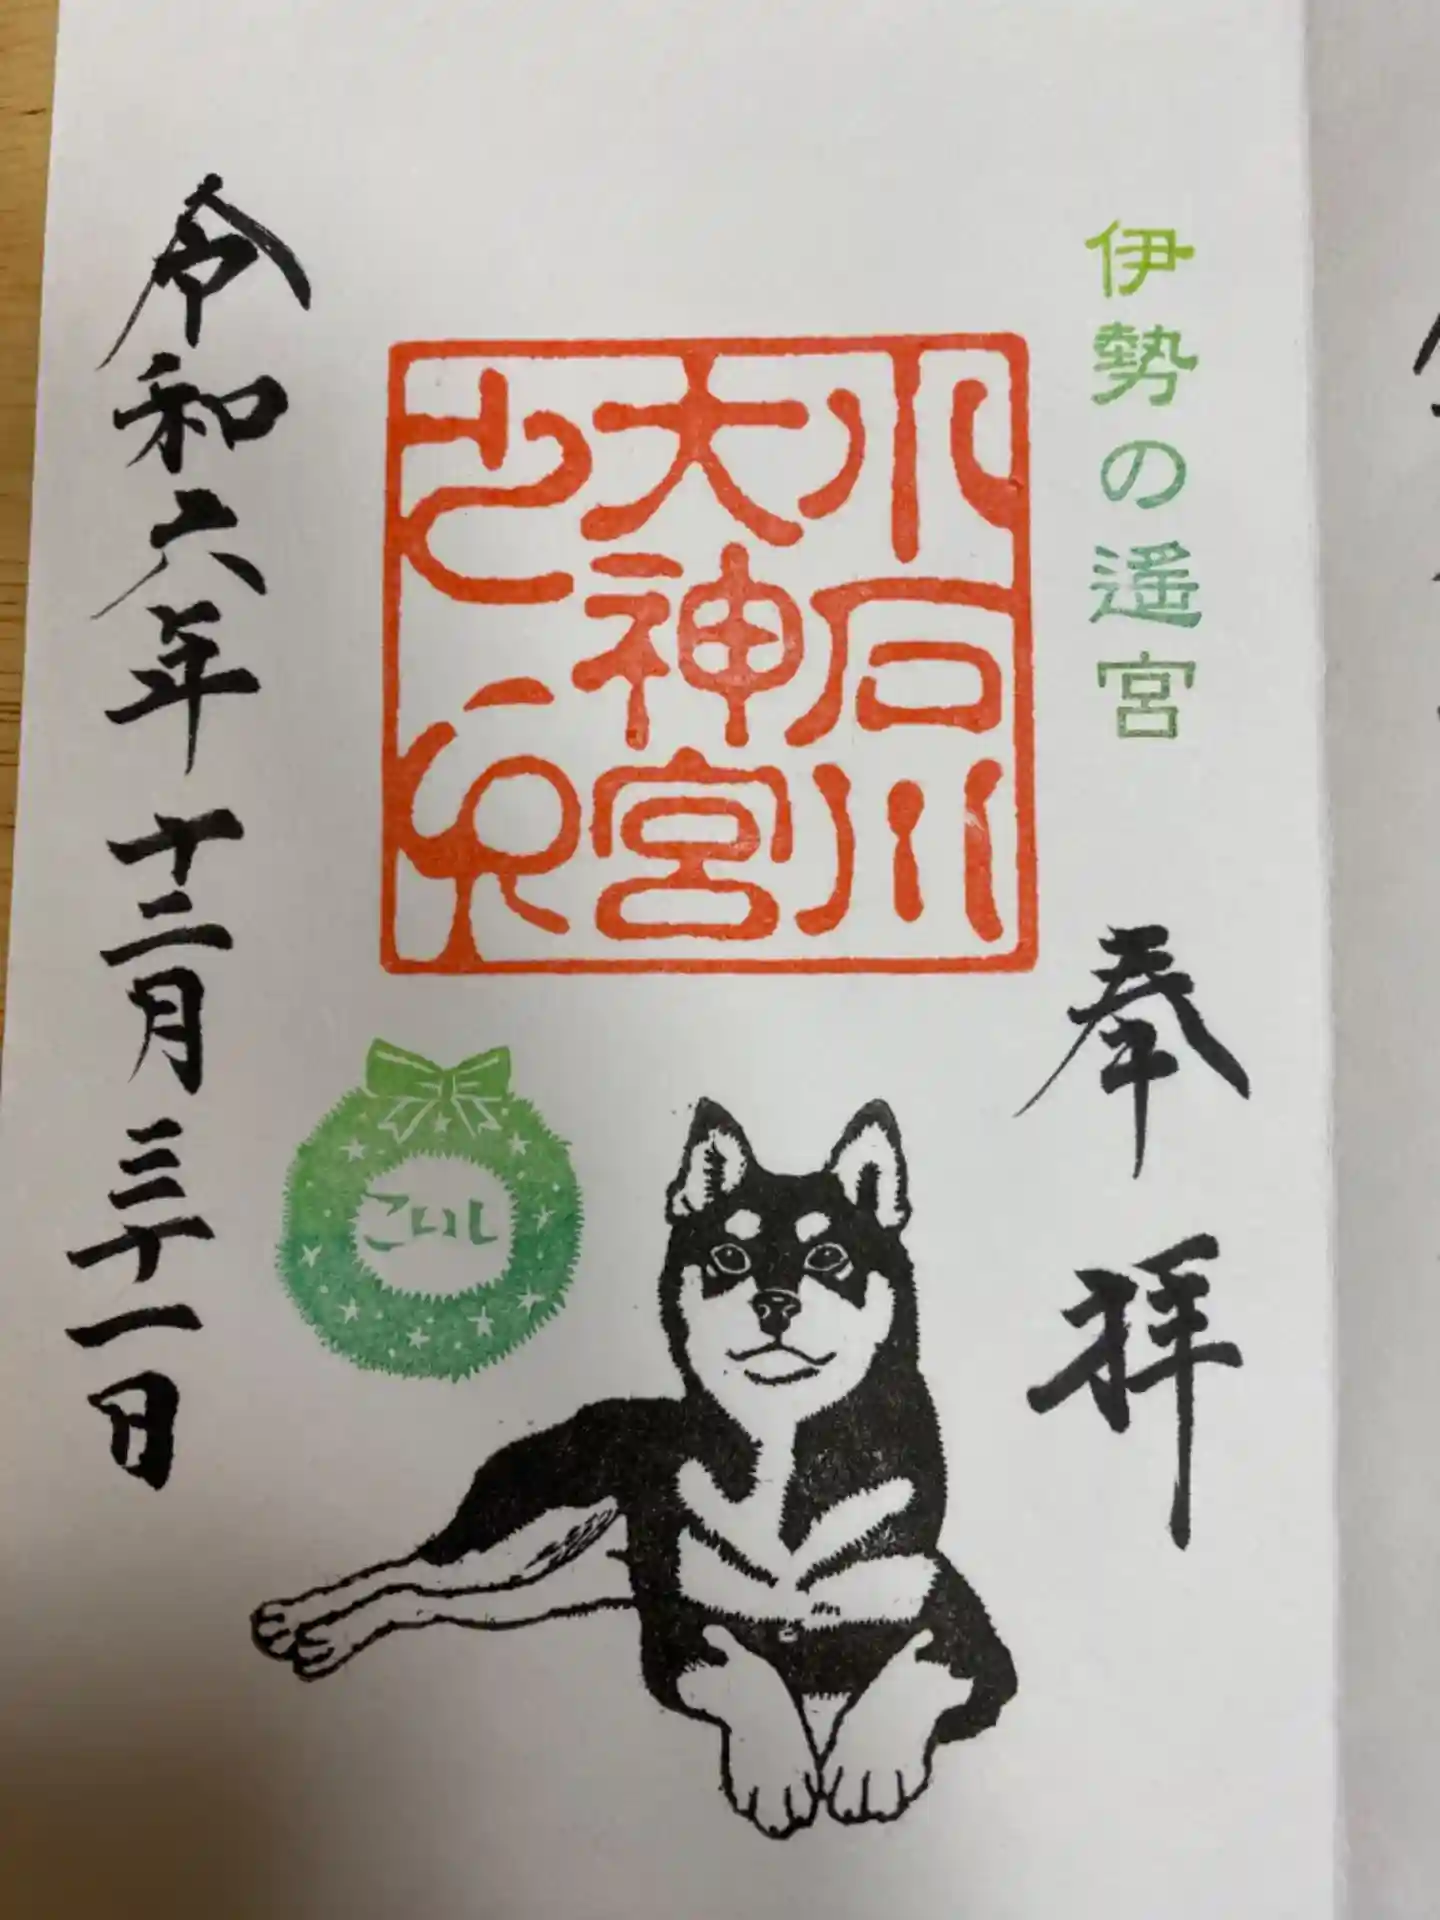 伊勢の遥宮
奉拝
小石川
大神宮
之印
こいし
令和六年十二月三十一日